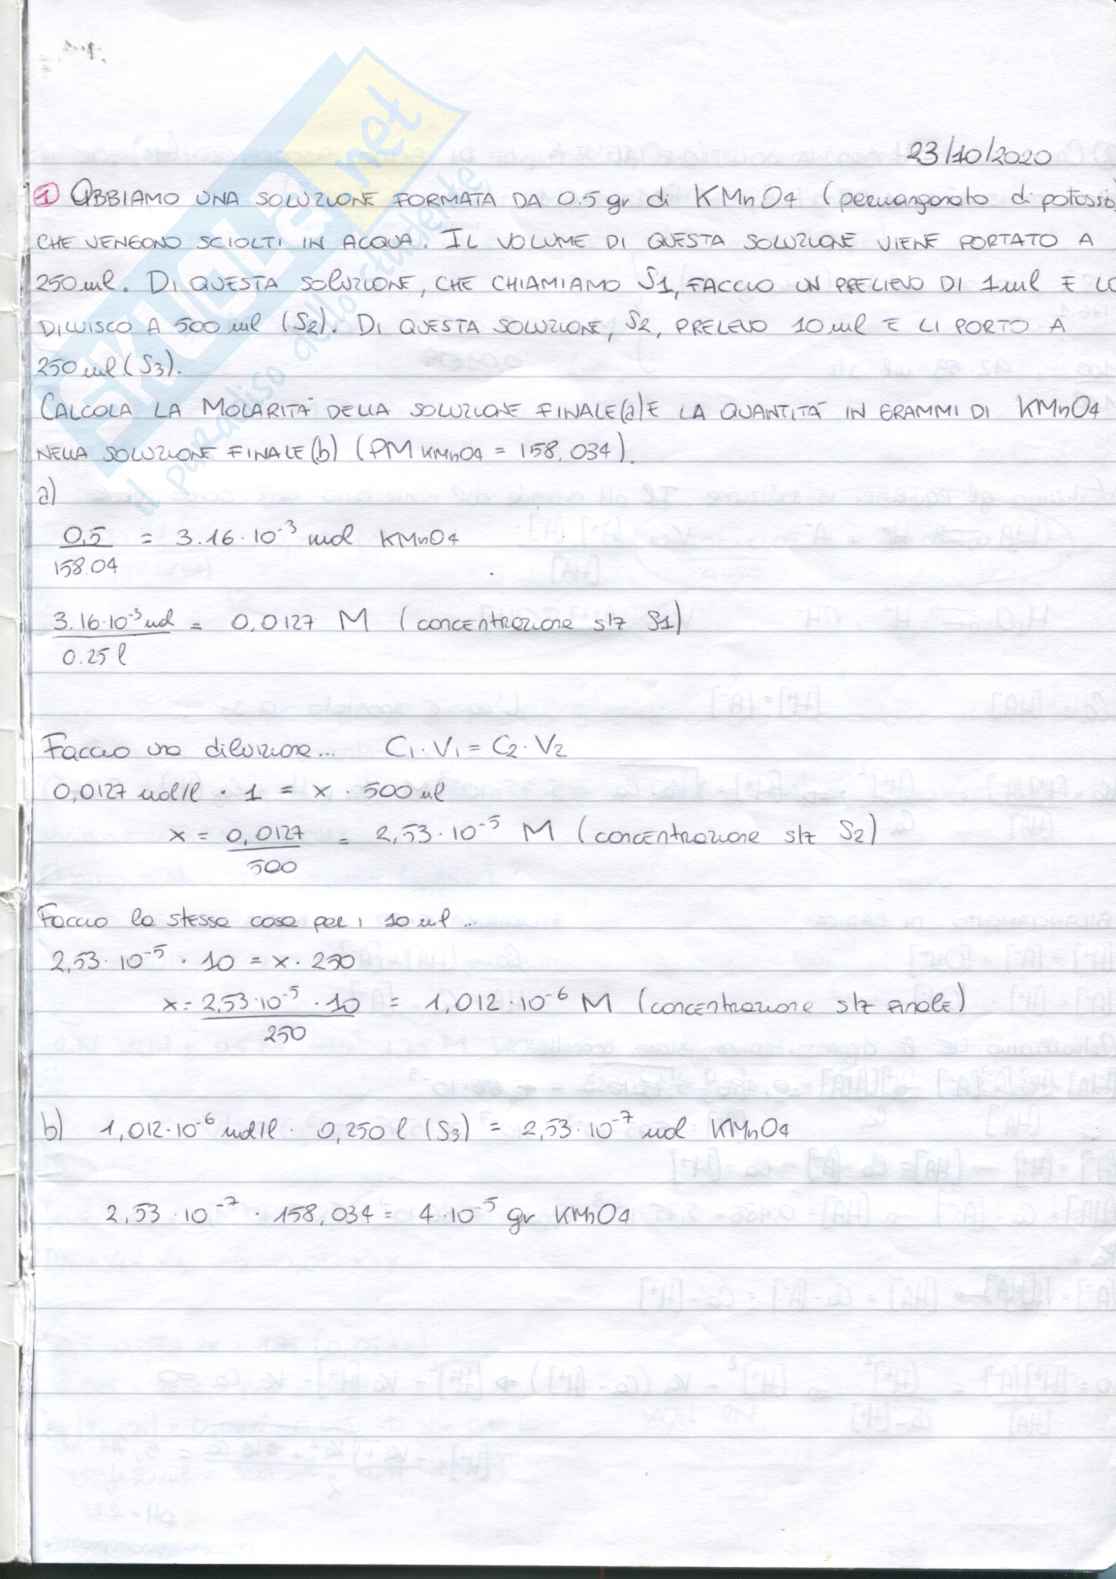 23/10/2020
1 ABBIAMO UNA SOLUZIONE FORMATA DA 0.5 gr di KMnO4 (permanganato di potassio
CHE VENGONO SCIOLTI IN ACQUA. IL VOLUME DI QUESTA SOLUZIONE VIENE PORTATO A
250 ml. DI QUESTA SOLUZIONE, CHE CHIAMIAMO S1, FACCIO UN PRELIEVO DI 1 ml E LO
DILUISCO A 500 ml (S2). DI QUESTA SOLUZIONE, S2, PRELEVO 10 ml E LI PORTO A
250 ml (S3).
CALCOLA LA MOLARITÀ DELLA SOLUZIONE FINALE (a) E LA QUANTITÀ IN GRAMMI DI KMnO4
NELLA SOLUZIONE FINALE (b) (PM KMnO4 = 158,034).
a)
0,5 = 3.16·10⁻³ mol KMnO4
158.04
3.16·10⁻³ mol = 0,0127 M (concentrazione slz S1)
0.25 l
Faccio una diluizione... C1·V1 = C2·V2
0,0127 mol/l · 1 = x · 500 ml
x = 0,0127 = 2,53·10⁻⁵ M (concentrazione slz S2)
500
Faccio la stessa cosa per i 10 ml...
2,53·10⁻⁵ · 10 = x · 250
x = 2,53·10⁻⁵ · 10 = 1,012·10⁻⁶ M (concentrazione slz finale)
250
b) 1,012·10⁻⁶ mol/l · 0,250 l (S3) = 2,53·10⁻⁷ mol KMnO4
2,53·10⁻⁷ · 158,034 = 4·10⁻⁵ gr KMnO4
SKUOLA.net
il paradiso dello studente